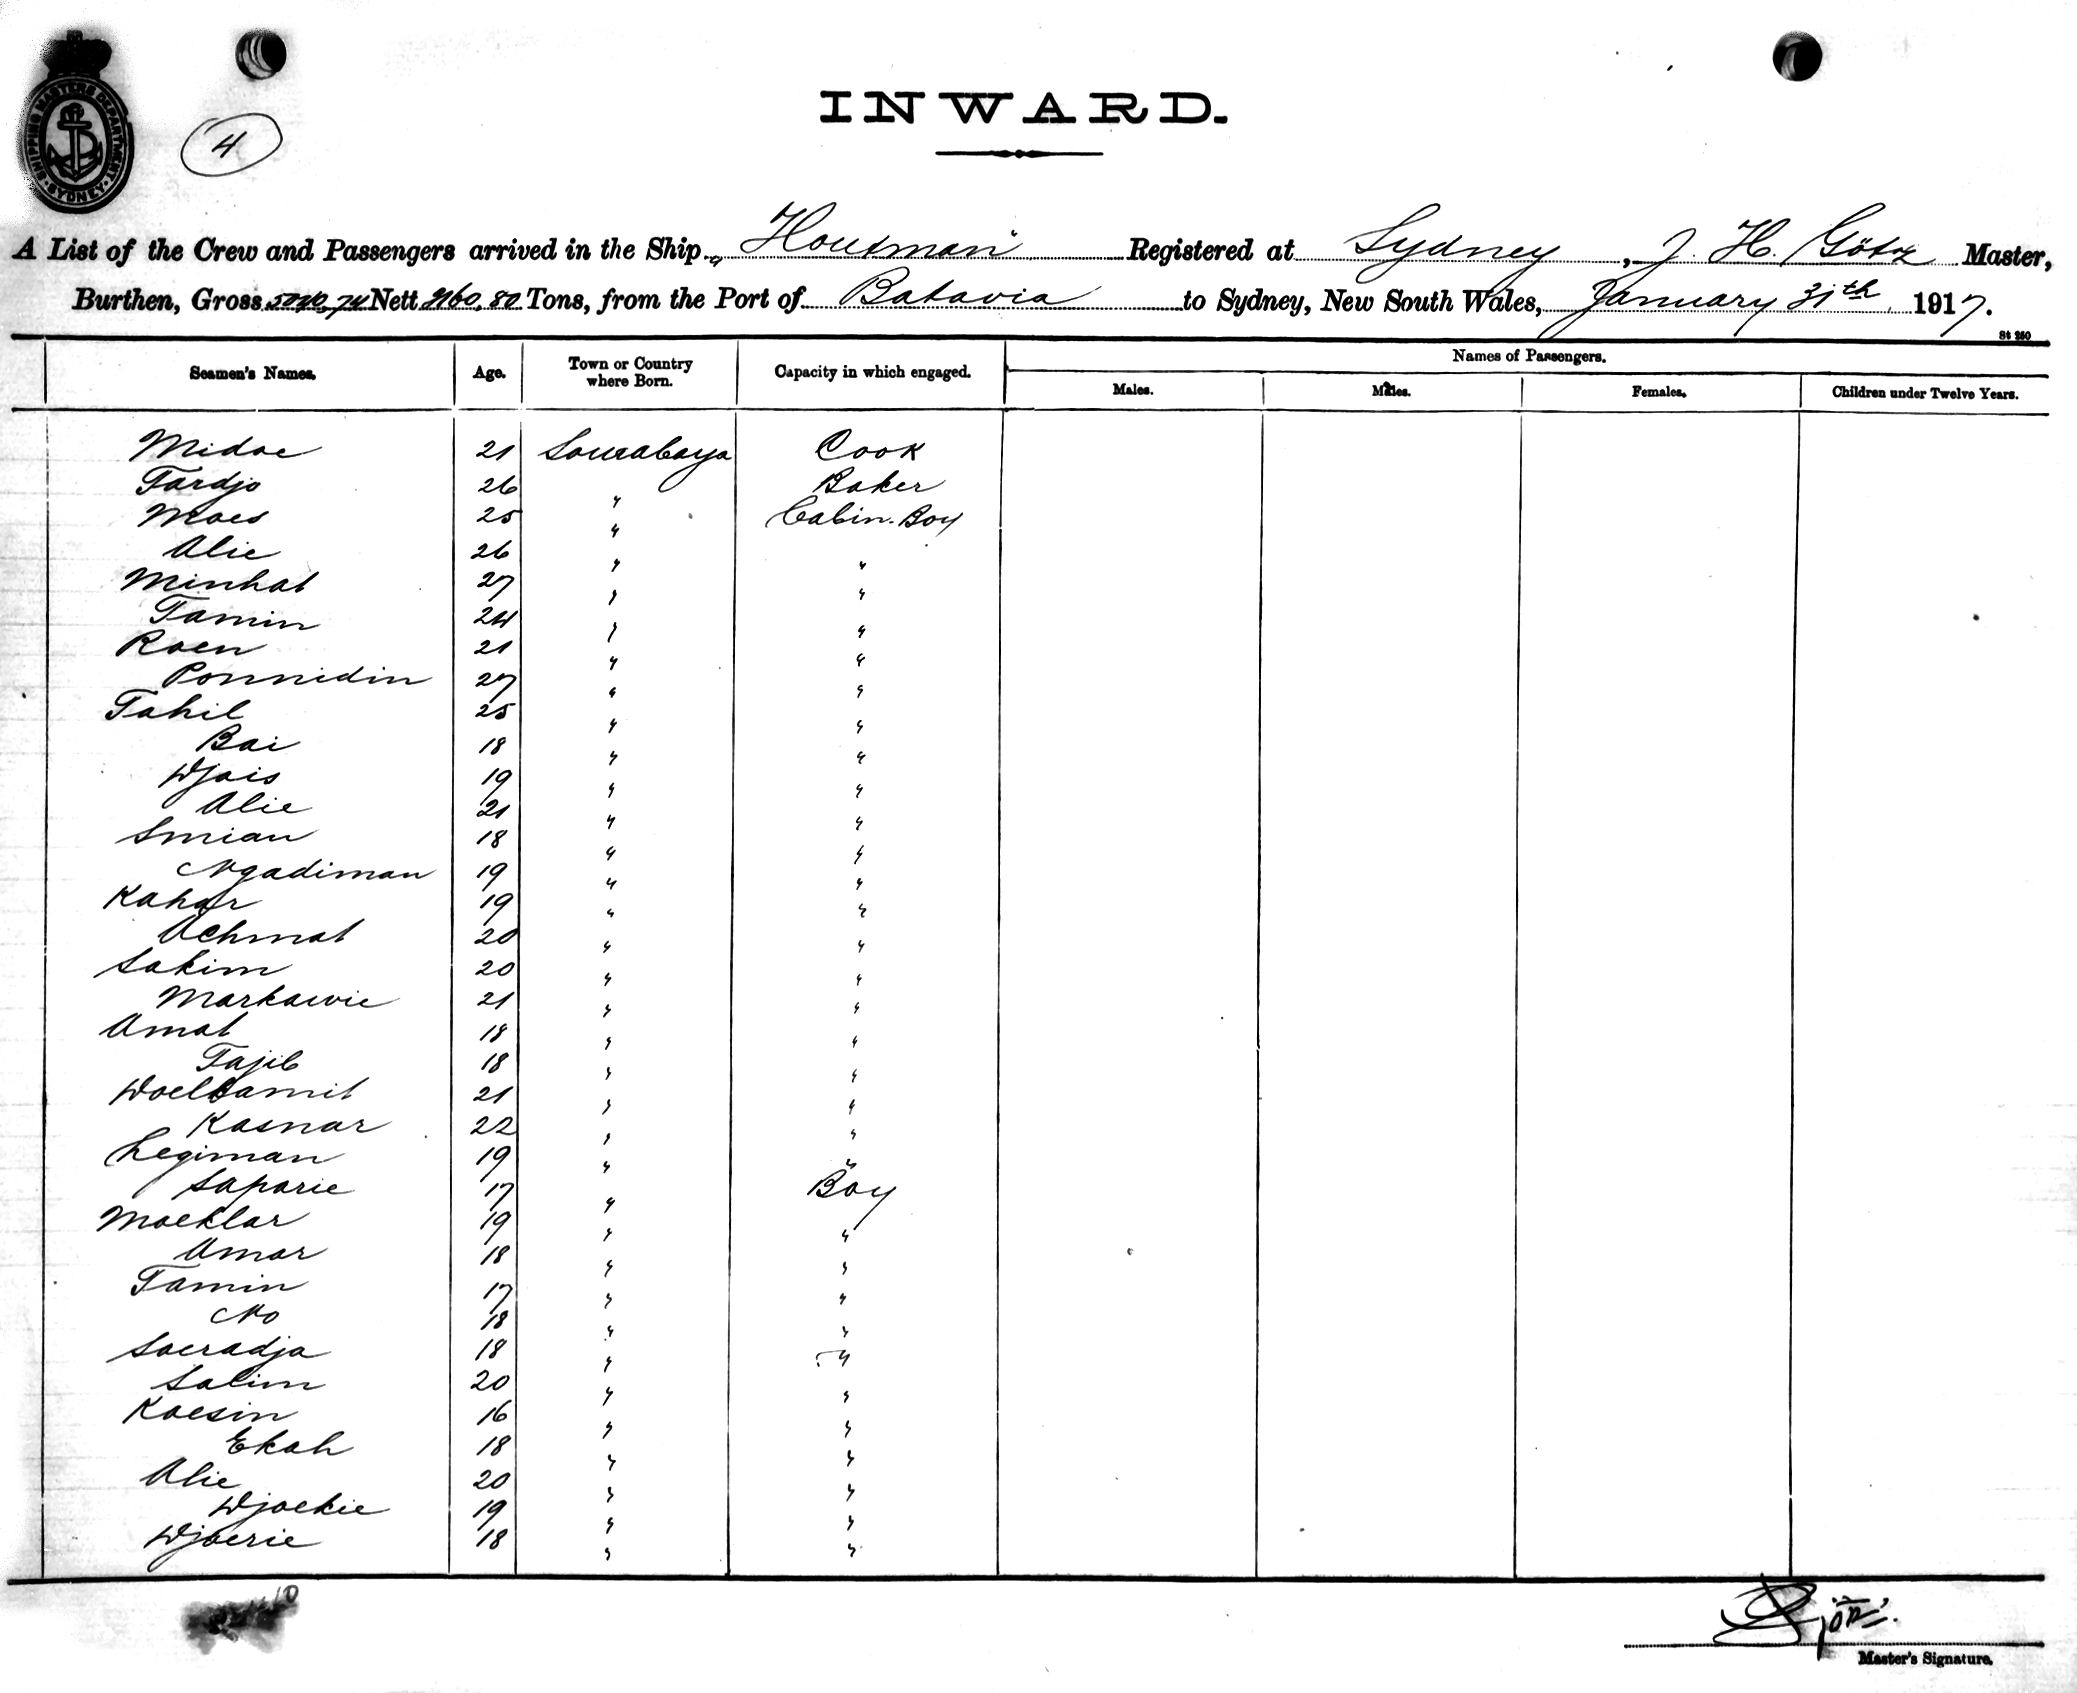 SHIPPING MASTERS DEPARTMENT SYDNEY
4
INWARD.
A List of the Crew and Passengers arrived in the Ship "Houtman" Registered at Sydney, J. H. Götz Master,
Burthen, Gross Nett Tons, from the Port of Batavia to Sydney, New South Wales, January 31th 1917.
St 250
Seamen's Names. Age. Town or Country where Born. Capacity in which engaged. Names of Passengers.
Males. Males. Females. Children under Twelve Years.
Midoe 21 Sourabaya Cook
Tardjo 26 " Baker
Moes 25 " Cabin-Boy
Alie 26 " "
Minhat 27 " "
Tamin 24 " "
Roen 21 " "
Ponnidin 27 " "
Tahil 25 " "
Bai 18 " "
Djais 19 " "
Alie 21 " "
Smian 18 " "
Ngadiman 19 " "
Kahar 19 " "
Achmat 20 " "
Sakim 20 " "
Markawie 21 " "
Amat 18 " "
Tajib 18 " "
Doelhamit 21 " "
Kasnar 22 " "
Legiman 19 " "
Saparie 17 " Boy
Moektar 19 " "
Amar 18 " "
Tamin 17 " "
No 18 " "
Soeradja 18 " "
Salim 20 " "
Koesin 16 " "
Ekah 18 " "
Alie 20 " "
Djoekie 19 " "
Djoerie 18 " "
Master's Signature.